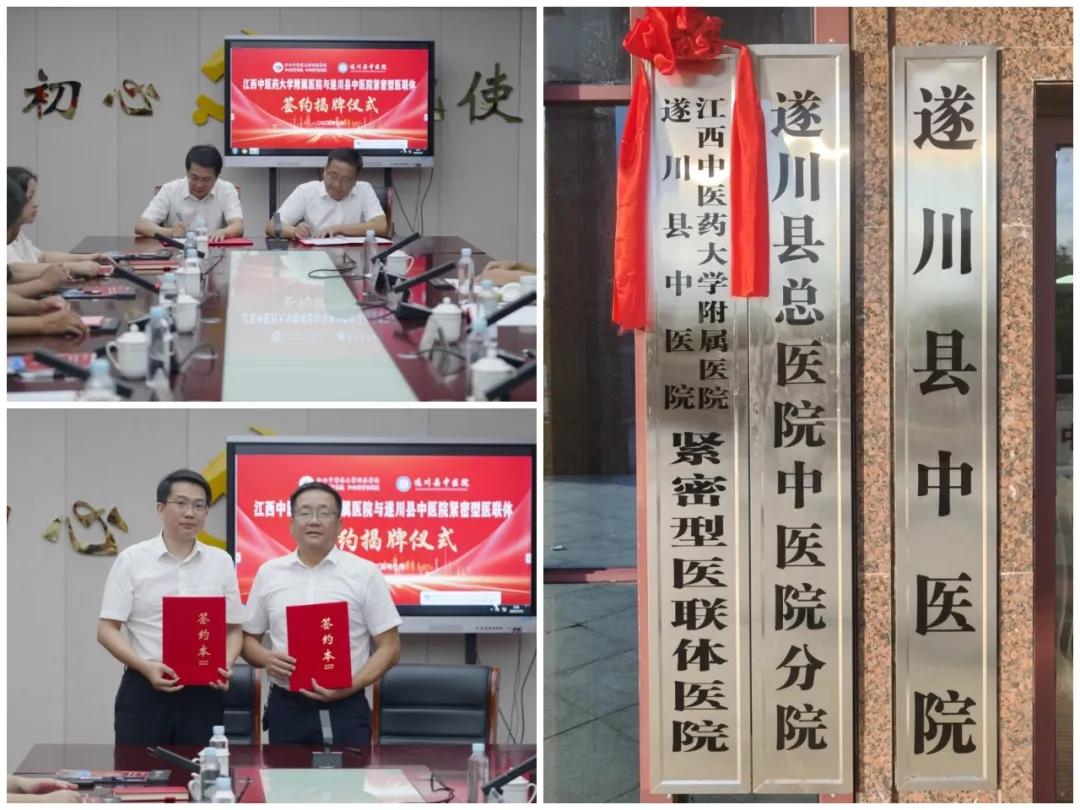 初心
使
遂川县中医院
江西中医药大学附属医院与遂川县中医院紧密型医联体
签约揭牌仪式
心
遂川县中医院
江西中医
属医院与遂川县中医院紧密型医联体
约揭牌仪式
签约本
签约本
江西中医药大学附属医院
遂川县中医院
紧密型医联体医院
遂川县总医院中医院分院
遂川县中医院
中